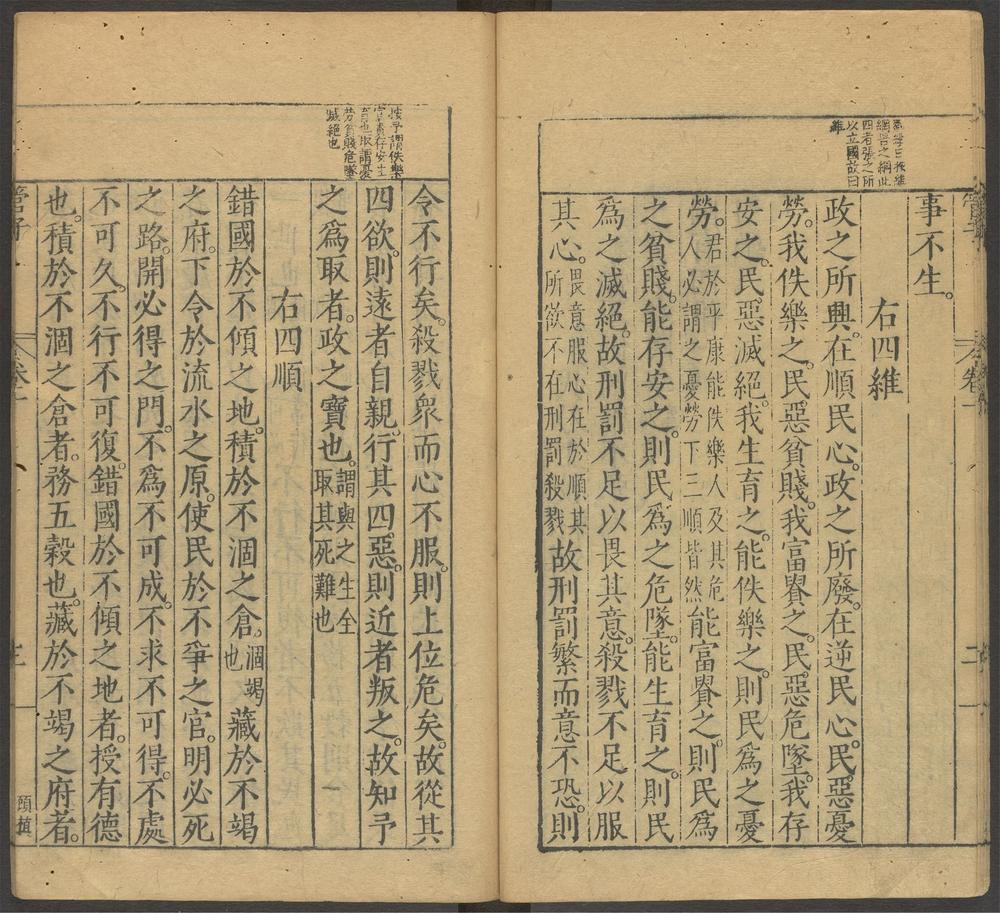 管子
卷一
二
事不生。
右四維
政之所興。在順民心。政之所廢。在逆民心。民惡憂
勞。我佚樂之。民惡貧賤。我富貴之。民惡危墜。我存
安之。民惡滅絕。我生育之。能佚樂之。則民爲之憂
勞。君於平康能佚樂人及其危
人必謂之憂勞下三順皆然能富貴之。則民爲
之貧賤。能存安之。則民爲之危墜。能生育之。則民
爲之滅絕。故刑罰不足以畏其意。殺戮不足以服
其心。畏意服心在於順其
所欲不在刑罰殺戮故刑罰繁而意不恐。則
綱罟之綱此
四者張之所
以立國故曰
維
令不行矣。殺戮衆而心不服。則上位危矣。故從其
四欲。則遠者自親。行其四惡。則近者叛之。故知予
之爲取者。政之寶也。謂與之生全
取其死難也
右四順
錯國於不傾之地。積於不涸之倉。涸竭
也藏於不竭
之府。下令於流水之原。使民於不爭之官。明必死
之路。開必得之門。不爲不可成。不求不可得。不處
不可久。不行不可復。錯國於不傾之地者。授有德
也。積於不涸之倉者。務五穀也。藏於不竭之府者。
按予謂佚樂
富貴存安生
育也取謂憂
勞貧賤危墜
滅絕也
管子
卷一